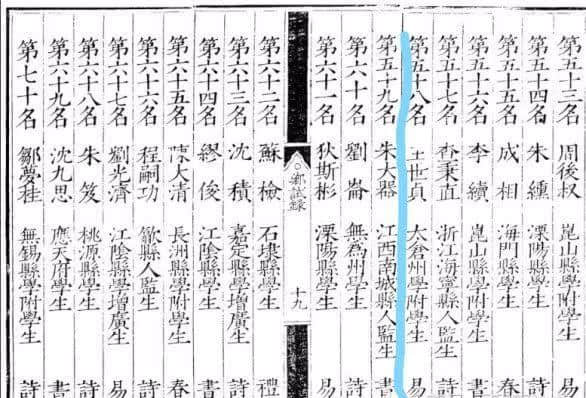 第五十三名 周後叔 崑山縣學附學生 易
第五十四名 朱纁 溧陽縣學生 詩
第五十五名 成相 海門縣學生 春
第五十六名 李續 崑山縣學附學生 書
第五十七名 查秉直 浙江海寧縣人監生 詩
第五十八名 王世貞 太倉州學附學生 易
第五十九名 朱大器 江西南城縣人監生 書
第六十名 劉崙 無為州學生 易
第六十一名 狄斯彬 溧陽縣學生 詩
鄉試錄 十九
第六十二名 蘇檢 石埭縣學生 禮
第六十三名 沈積 嘉定縣學增廣生 詩
第六十四名 繆俊 江陰縣學生 書
第六十五名 陳大清 長洲縣學附學生 春
第六十六名 程嗣功 歙縣人監生 易
第六十七名 劉光濟 江陰縣學增廣生 詩
第六十八名 朱笈 桃源縣學生 詩
第六十九名 沈九思 應天府學生 書
第七十名 鄒夢桂 無錫縣學附學生 詩